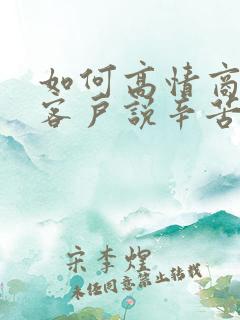 如何高情商
客户说辛苦
宋李煌
未经同意禁止转载